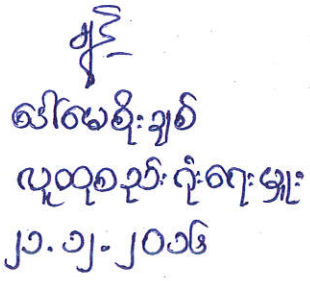 ဒေါ်မေစိုးချစ်
လူထုစည်းရုံးရေးမှူး
၂၁.၁၂.၂၀၁၆